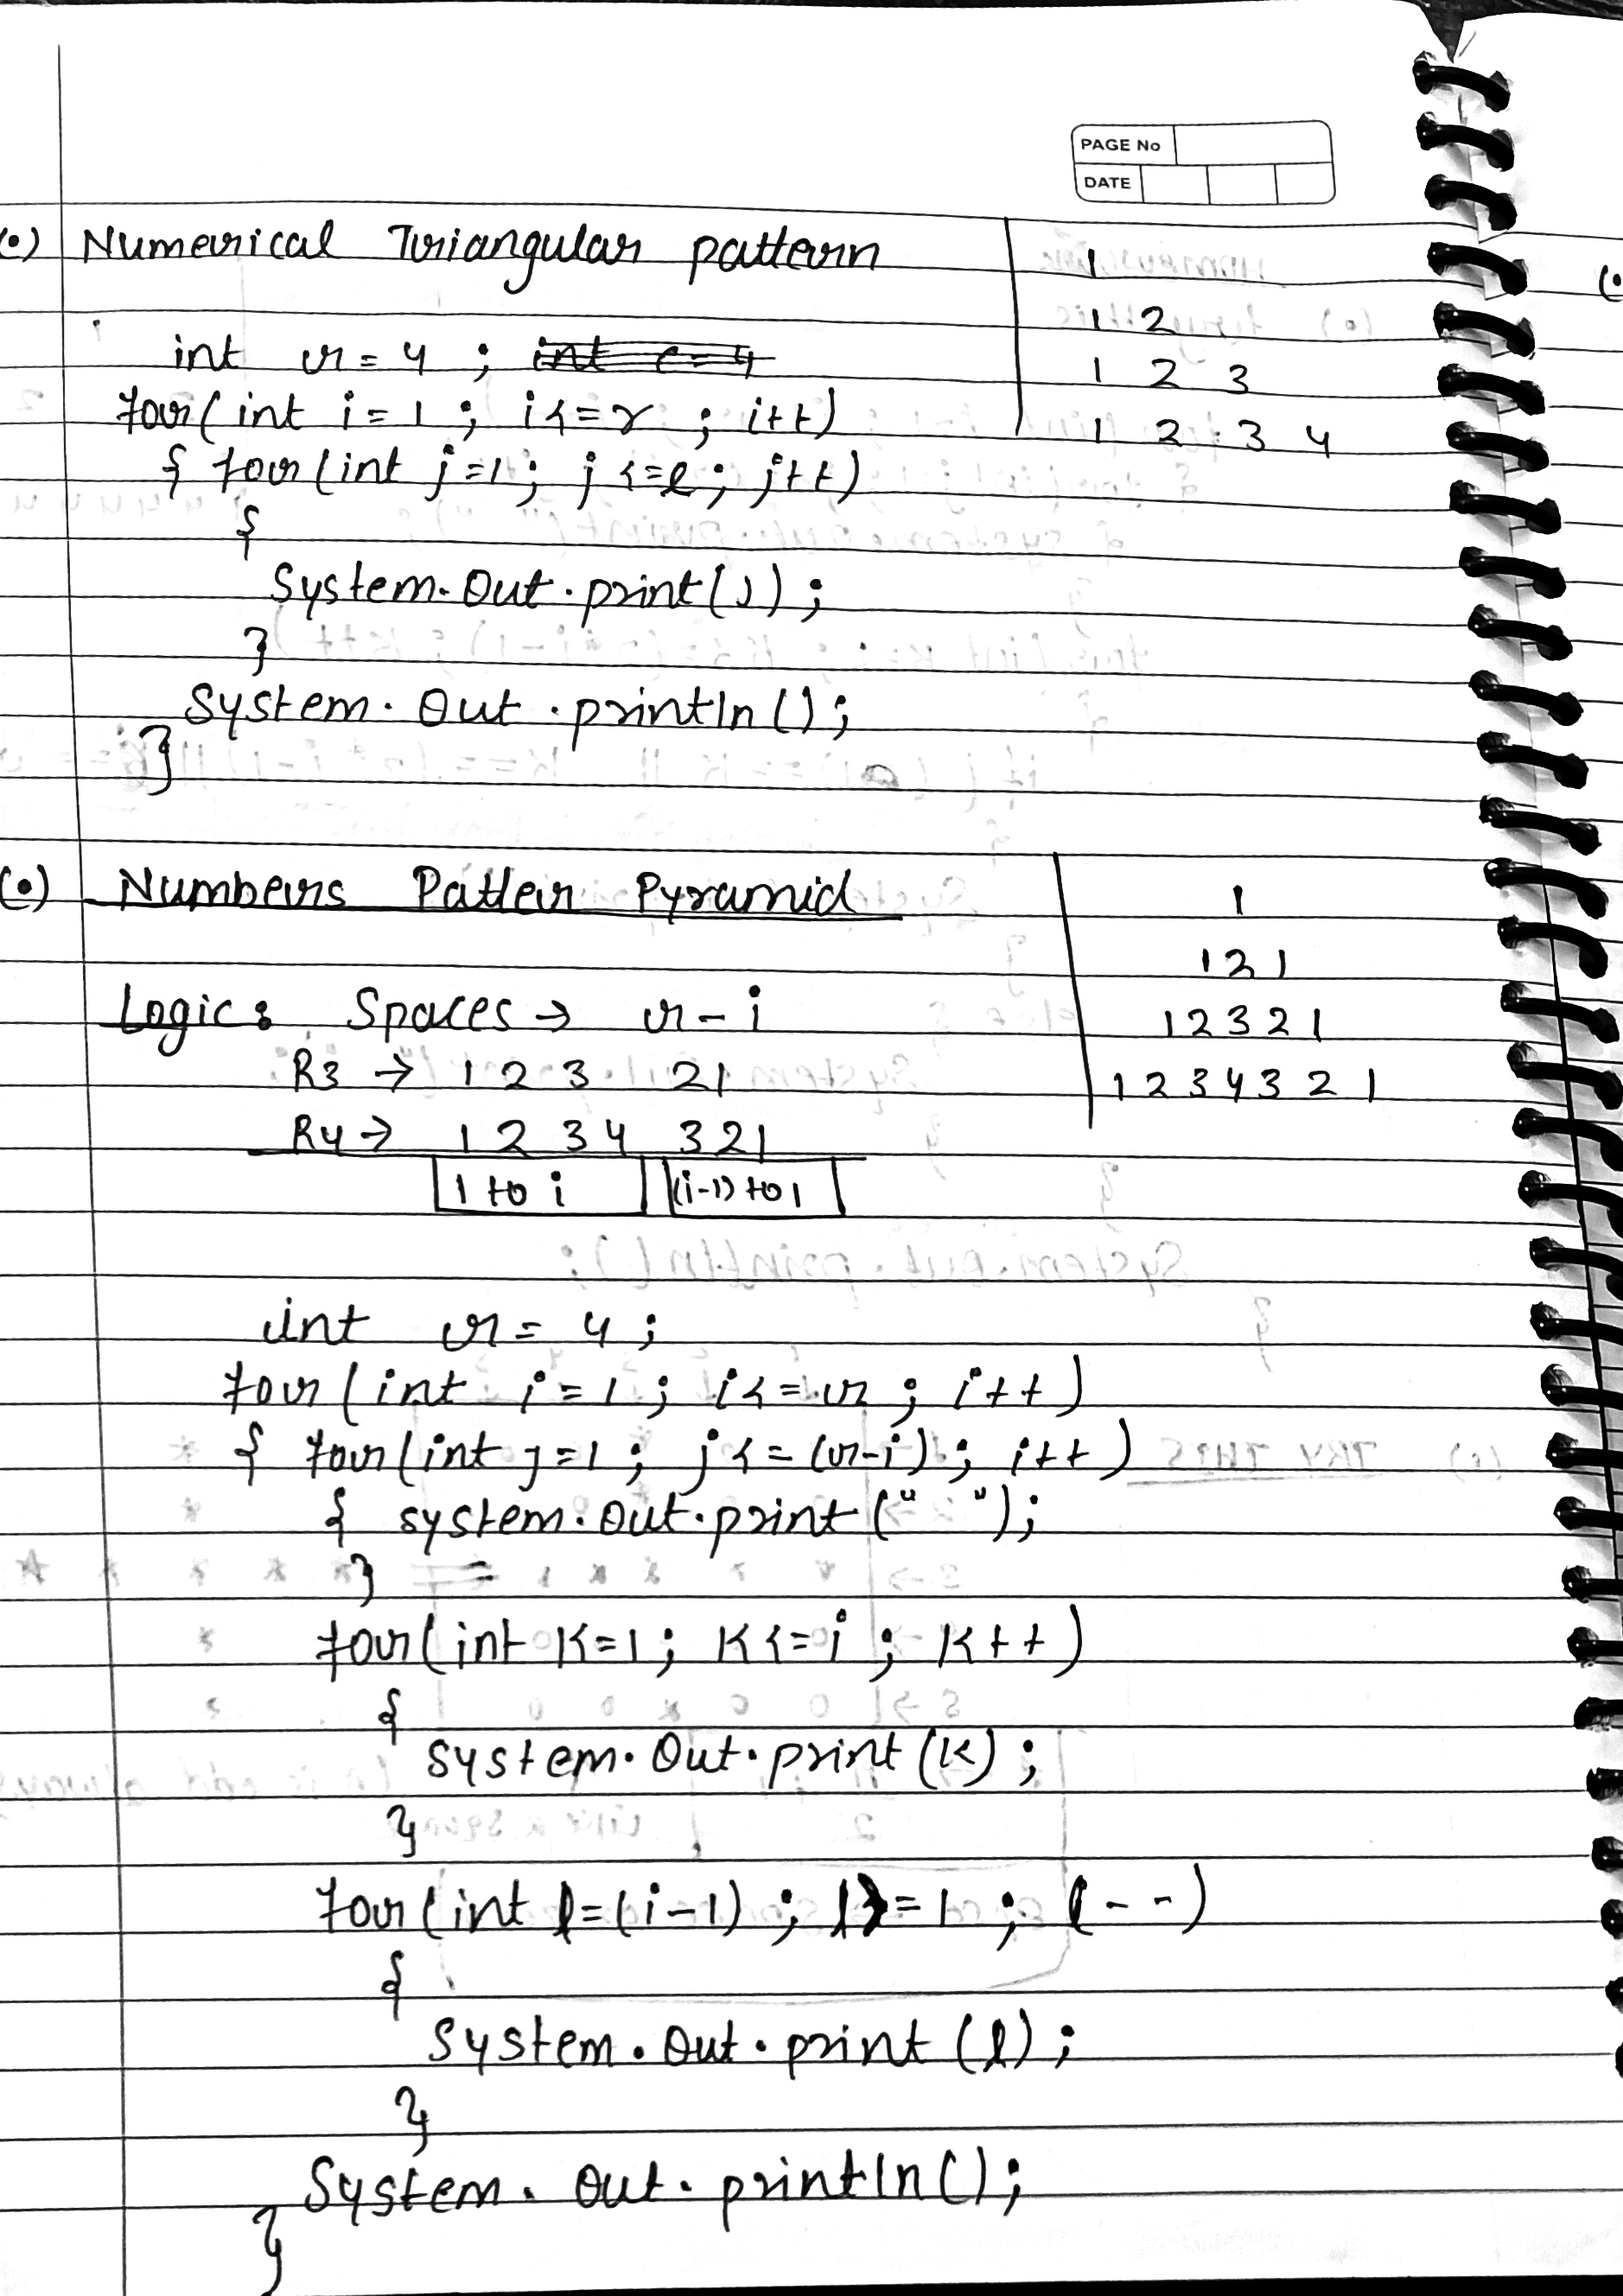 PAGE No
DATE
(•) Numerical Triangular pattern
1
1 2
1 2 3
1 2 3 4
int r = 4 ;
for( int i = 1 ; i <= r ; i++)
{ for (int j = 1; j <= l ; j++)
{
System. Out . print(J) ;
}
System . Out . println () ;
}
(•) Numbers Patter Pyramid
1
1 2 1
1 2 3 2 1
1 2 3 4 3 2 1
Logic : Spaces → r - i
R3 → 1 2 3 21
R4 → 1 2 3 4 3 2 1
1 to i (i-1) to 1
int r = 4 ;
for ( int i = 1 ; i <= r ; i++ )
{ for (int j = 1 ; j <= (r-i) ; i++ )
{ system . Out . print (" ") ;
}
for( int K=1 ; K <= i ; K++ )
{
System . Out . print (K) ;
}
for (int l = (i-1) ; l >= 1 ; l - - )
{
System . Out . print (l) ;
}
System . Out . println () ;
}